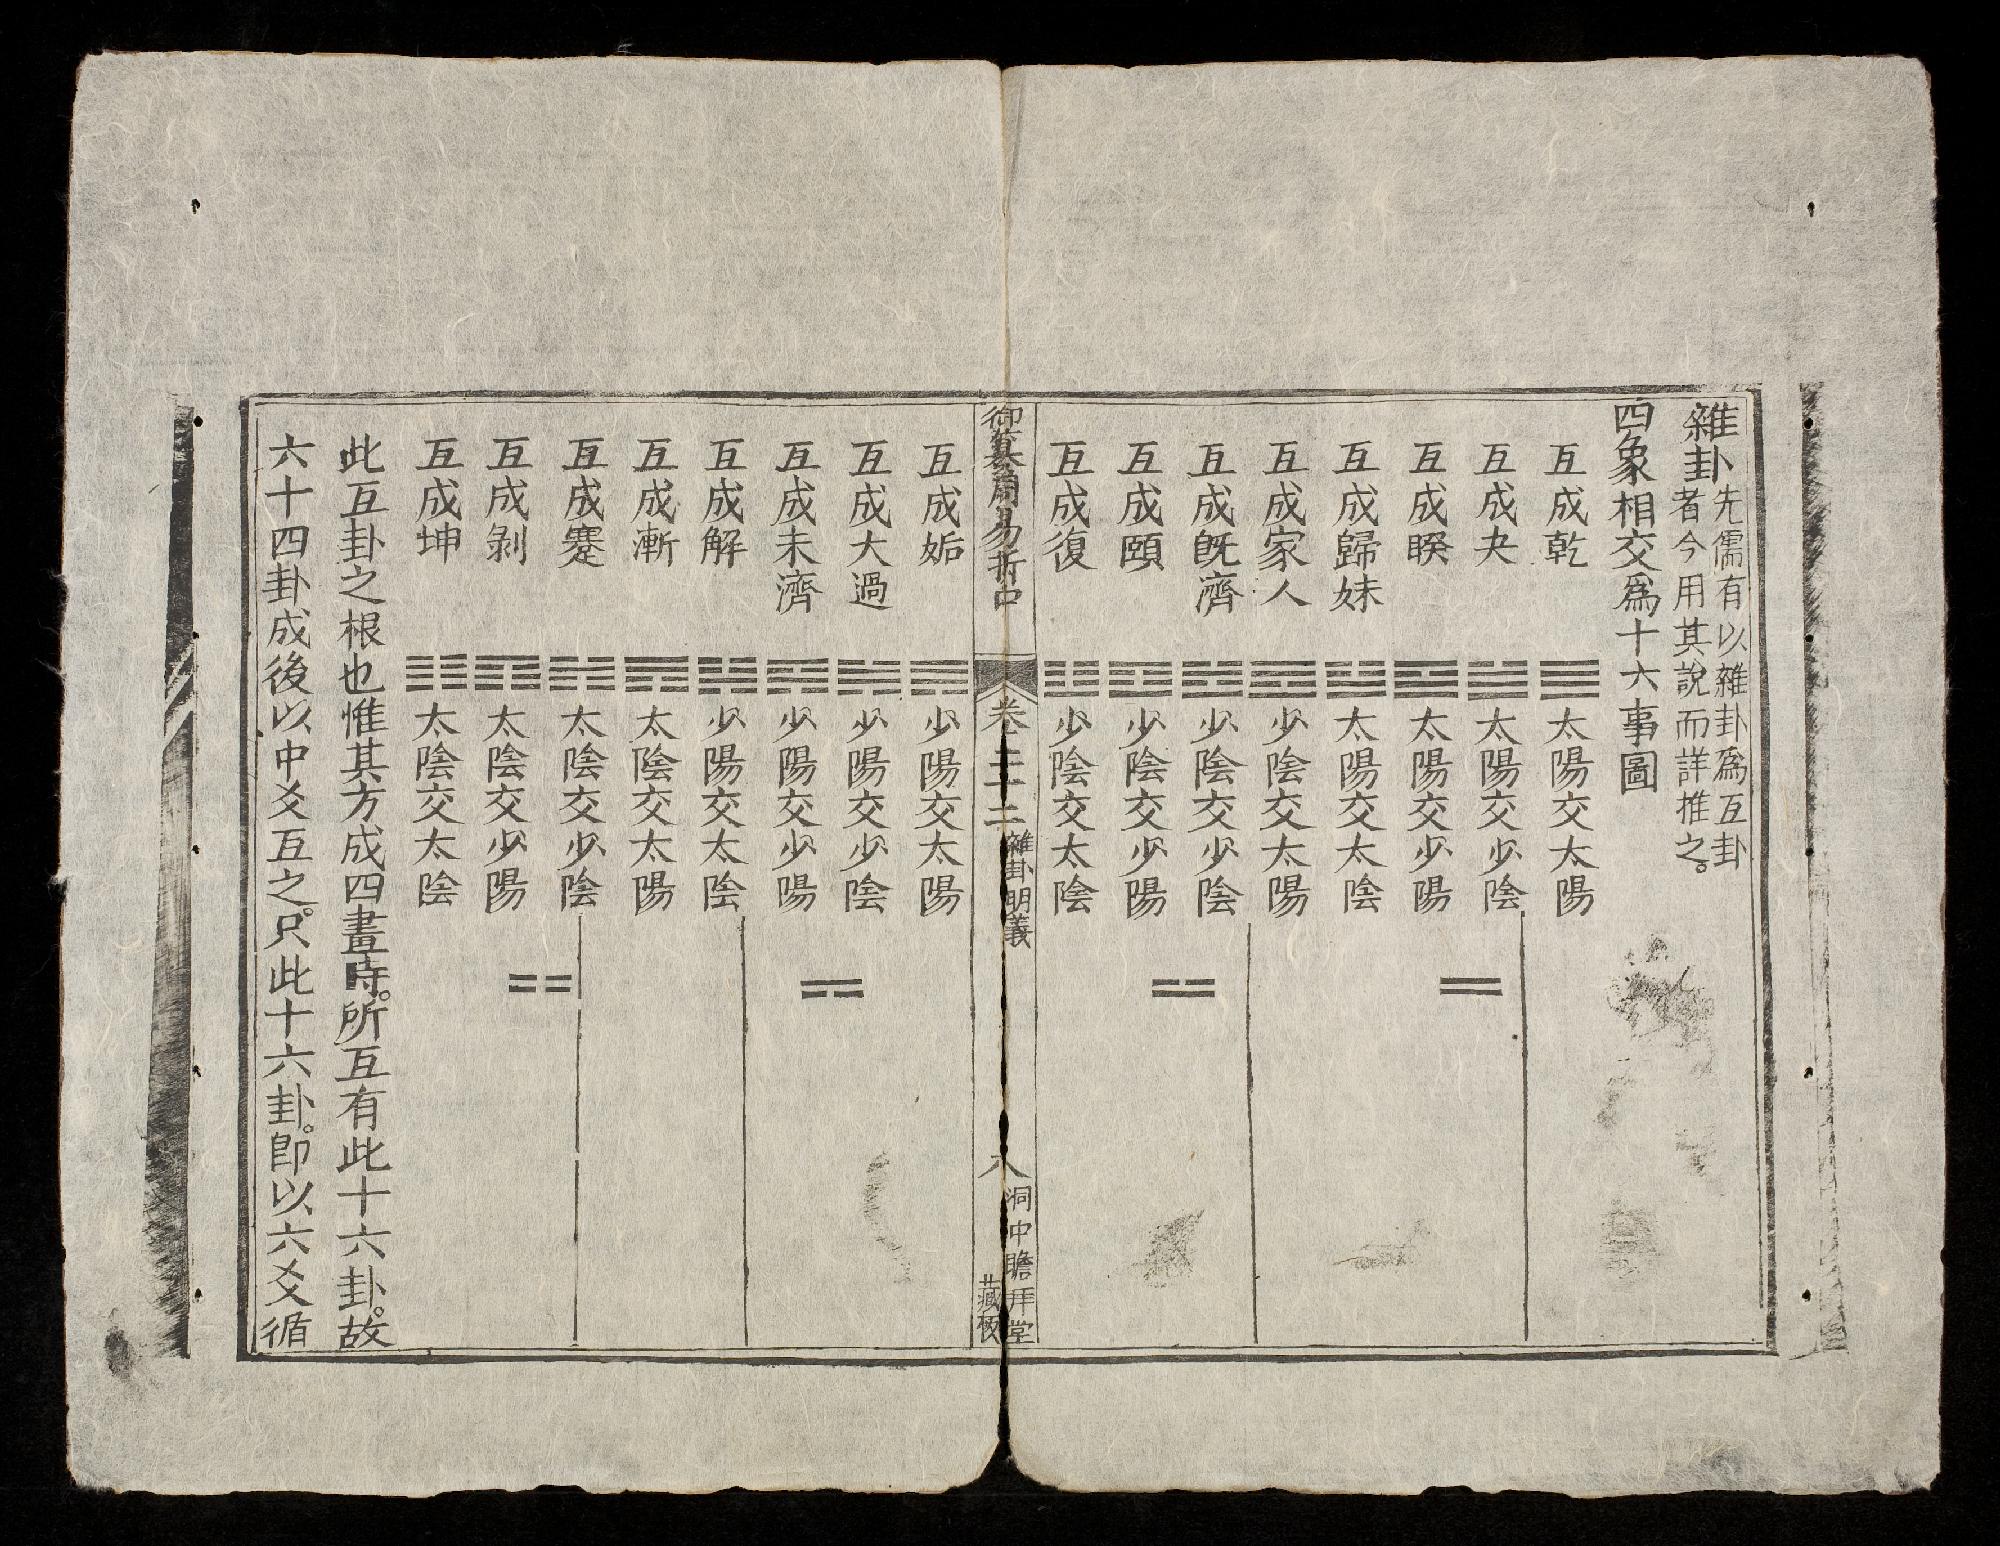 雜卦先儒有以雜卦爲互卦
者今用其說而詳推之。
四象相交爲十六事圖
互成乾 太陽交太陽
互成夬 太陽交少陰
互成睽 太陽交少陽
互成歸妹 太陽交太陰
互成家人 少陰交太陽
互成旣濟 少陰交少陰
互成頤 少陰交少陽
互成復 少陰交太陰
御纂周易折中 卷二十二 雜卦明義 八 洞中瞻拜堂
藏板
互成姤 少陽交太陽
互成大過 少陽交少陰
互成未濟 少陽交少陽
互成解 少陽交太陰
互成漸 太陰交太陽
互成蹇 太陰交少陰
互成剝 太陰交少陽
互成坤 太陰交太陰
此互卦之根也惟其方成四畫時。所互有此十六卦。故
六十四卦成後以中爻互之。只此十六卦。卽以六爻循